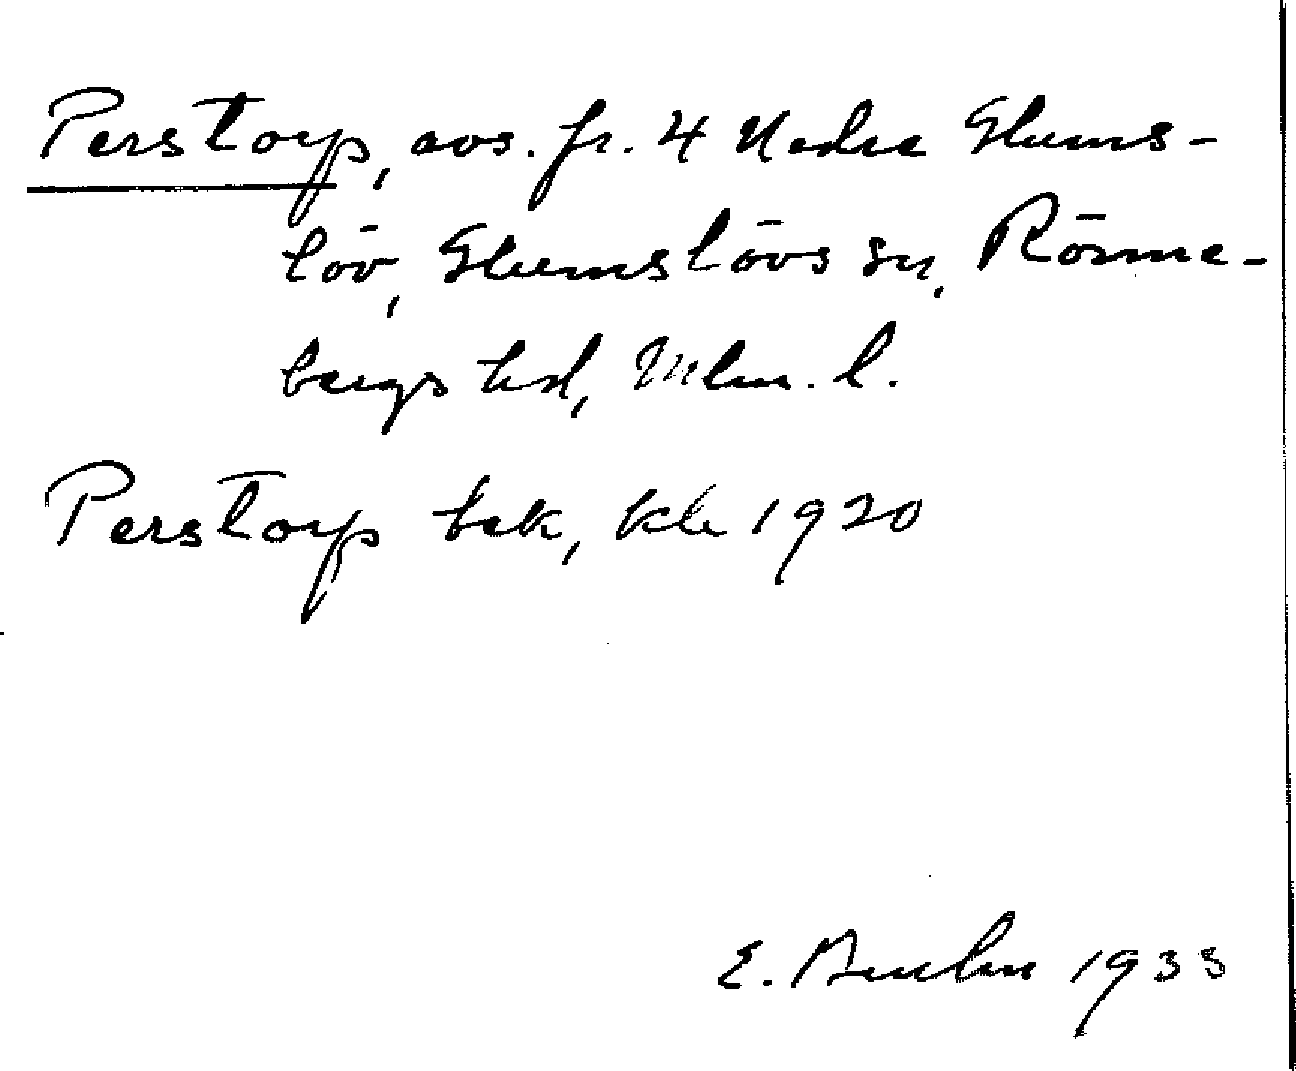 Perstorp, avs. fr. 4 Nedre Glums-
löv, Glumslövs sn, Rönne-
bergs hd, Mlm. l.
Perstorp bek, kbr 1920
E. 1933